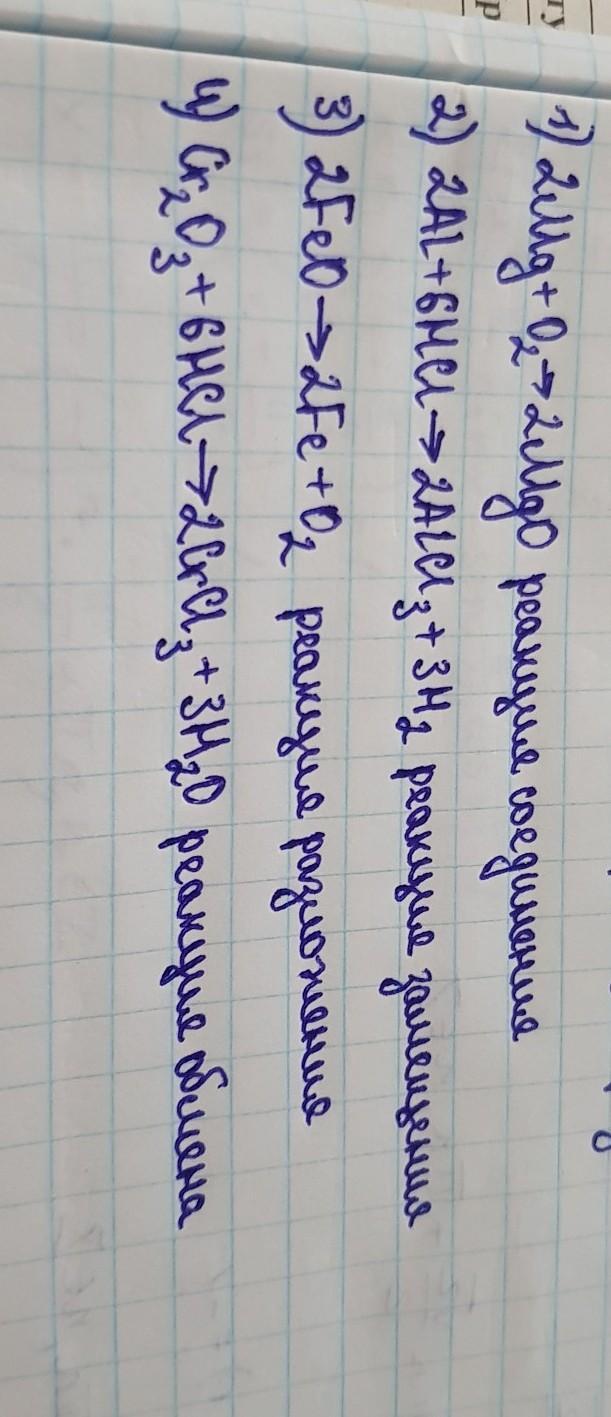 1) 2Mg + O₂ → 2MgO реакция соединения
2) 2Al + 6HCl → 2AlCl₃ + 3H₂ реакция замещения
3) 2FeO → 2Fe + O₂ реакция разложения
4) Cr₂O₃ + 6HCl → 2CrCl₃ + 3H₂O реакция обмена